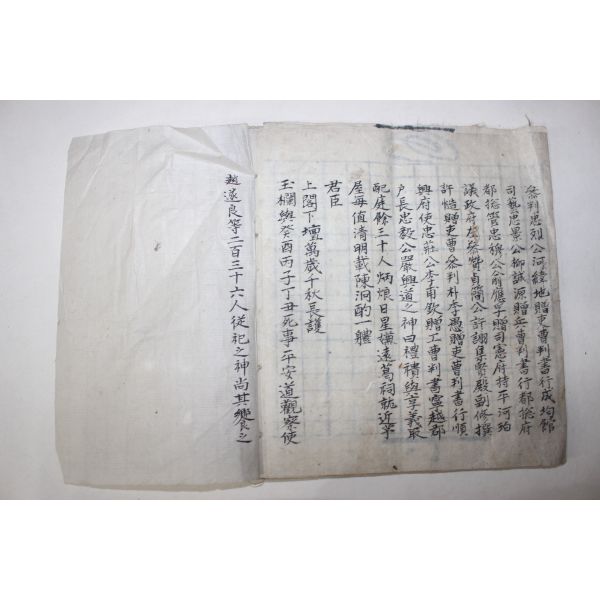 參判忠烈公河緯地贈吏曹判書行成均館
司藝忠景公柳誠源贈兵曹判書行都摠府
都摠管忠穆公兪應孚贈司憲府持平河珀
議政府左參贊貞簡公許詡集賢殿副修撰
許慥贈吏曹參判朴李愚贈吏曹判書行順
興府使忠莊公李甫欽贈工曹判書寧越郡
戶長忠毅公嚴興道之神曰禮積與享義取
配庭餘三十人炳烺日星嫌遠蔿祠就近苹
屋每值清明載陳泂酌一軆
君臣
上閣下壇萬歲千秋長護
玉欄與癸酉丙子丁丑死事平安道觀察使
趙遂良等二百三十六人從祀之神尚其饗之